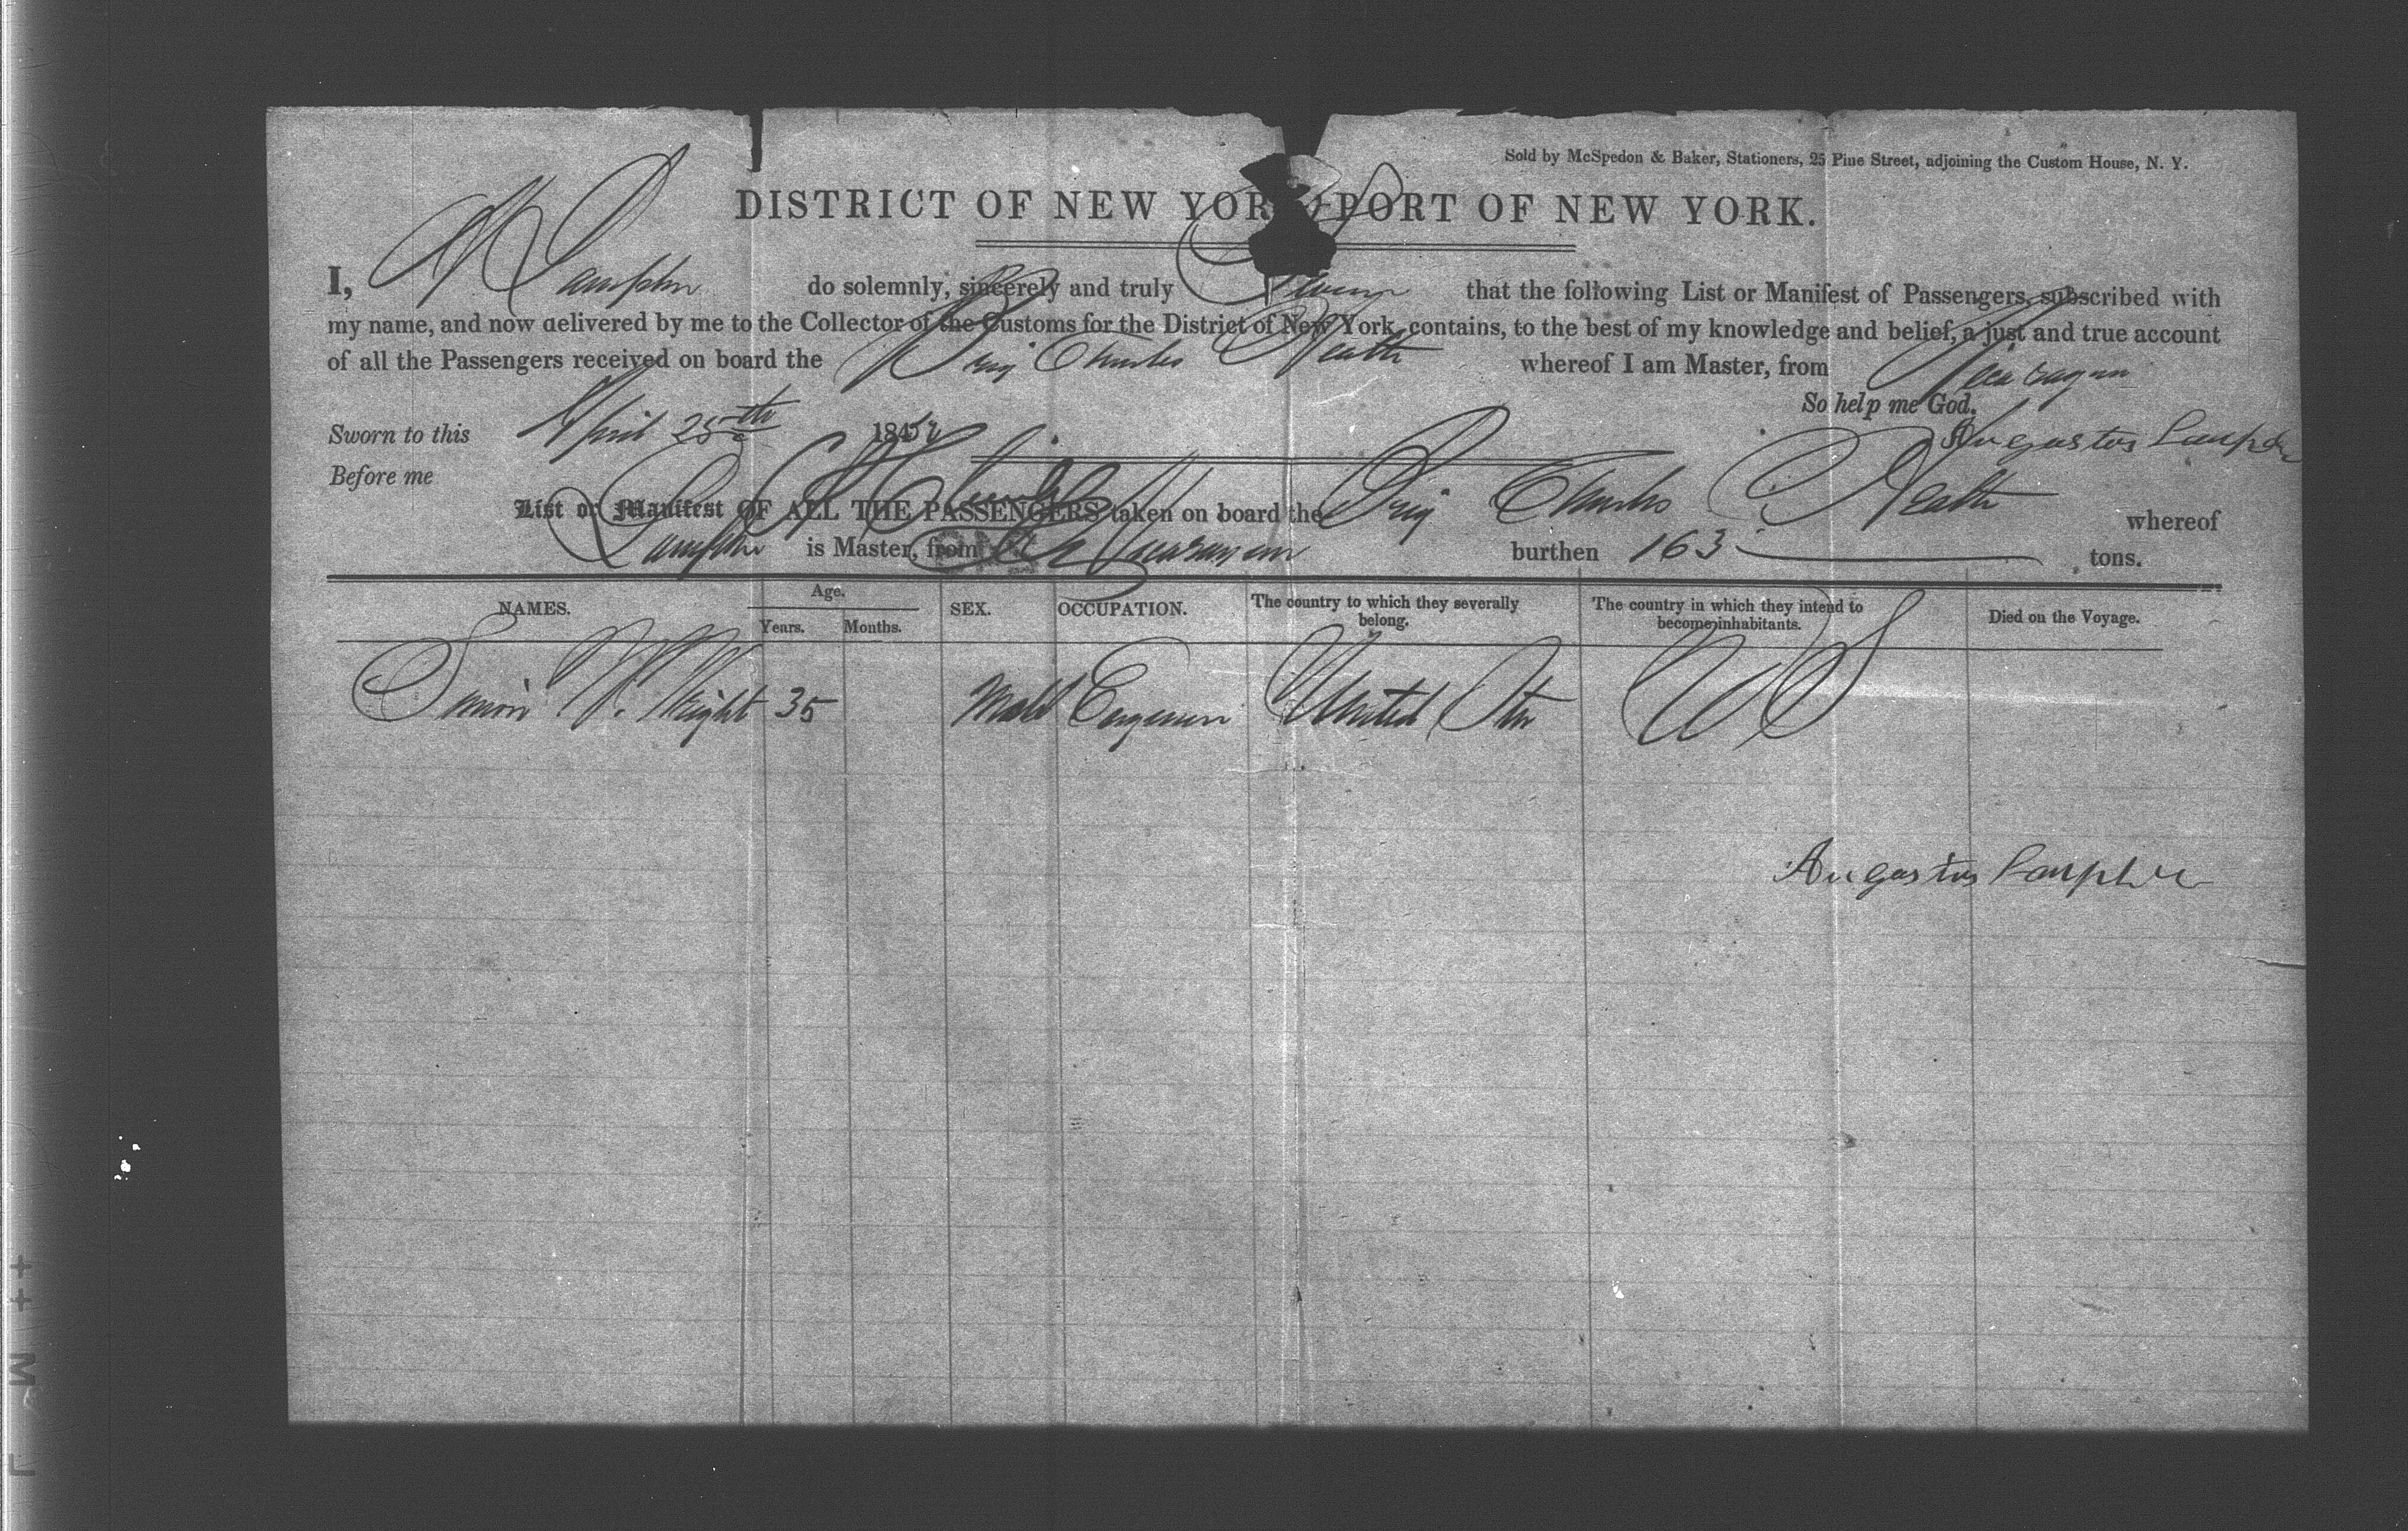 Sold by McSpedon & Baker, Stationers, 25 Pine Street, adjoining the Custom House, N. Y.
DISTRICT OF NEW YORK, PORT OF NEW YORK.
I, A Lampher do solemnly, sincerely and truly Swear that the following List or Manifest of Passengers, subscribed with
my name, and now delivered by me to the Collector of the Customs for the District of New York, contains, to the best of my knowledge and belief, a just and true account
of all the Passengers received on board the Brig Charles Heath whereof I am Master, from
So help me God.
Sworn to this April 25th 1852 Augustus Lampher
Before me
List or Manifest OF ALL THE PASSENGERS taken on board the Brig Charles Heath whereof
Lampher is Master, from burthen 163 tons.
NAMES. Age. SEX. OCCUPATION. The country to which they severally belong. The country in which they intend to become inhabitants. Died on the Voyage.
Years. Months.
Simon W. Wright 35 Male Engineer United States U S
Augustus Lampher